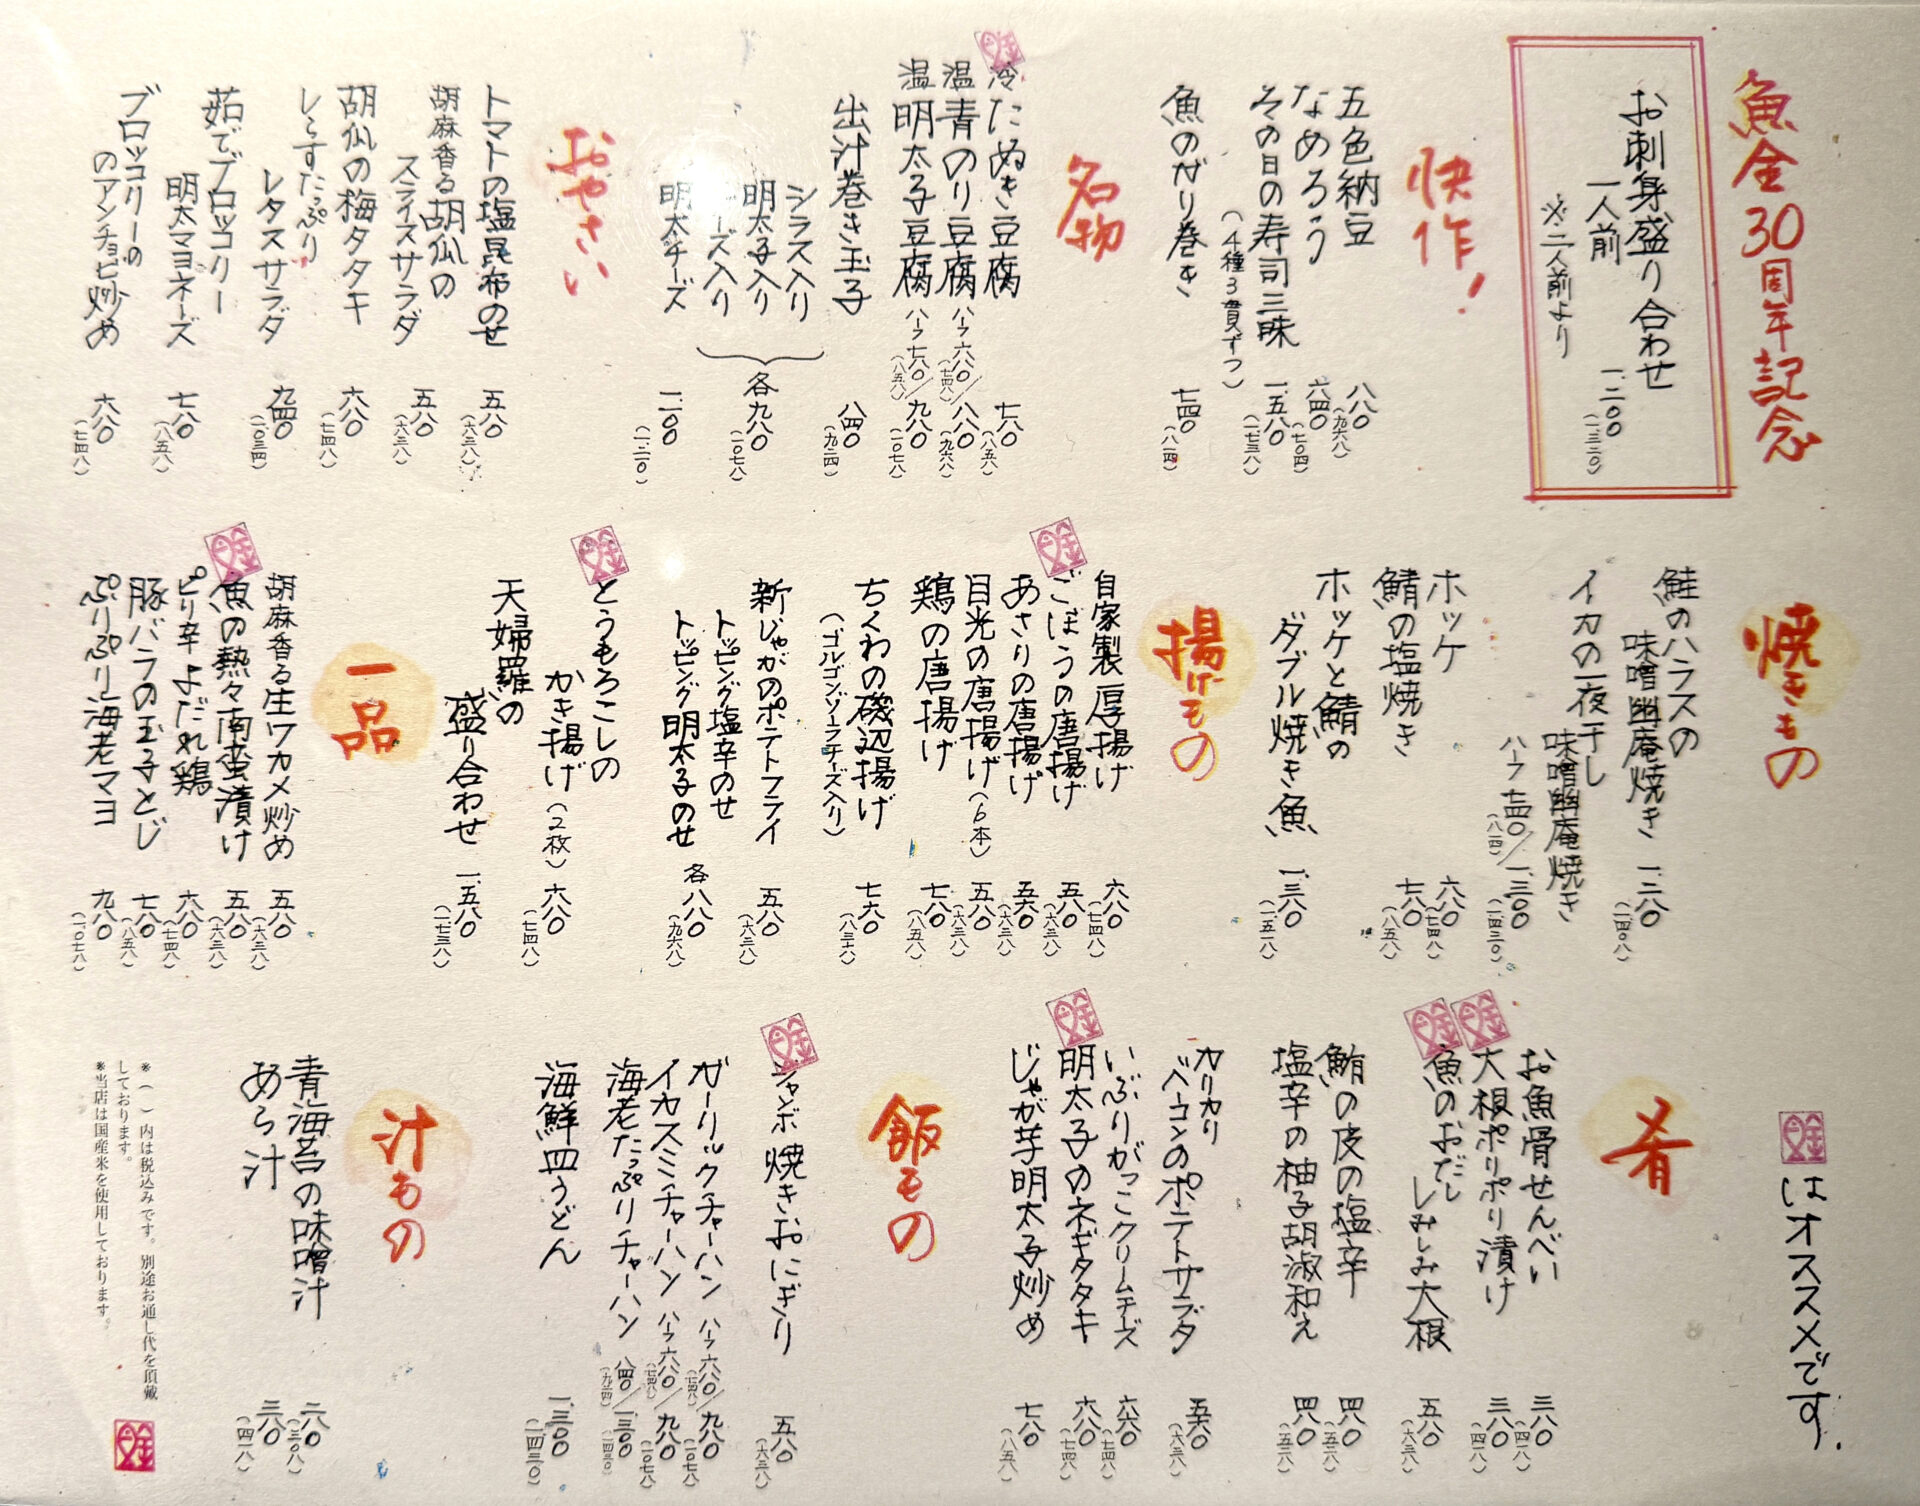 魚金30周年記念
お刺身盛り合わせ
一人前 一、二〇〇
(一、三二〇)
※二人前より
快作!
五色納豆 八八〇
(九六八)
なめろう 六四〇
(七〇四)
その日の寿司三昧 一、五八〇
(4種3貫ずつ) (一、七三八)
魚のガリ巻き 七四〇
(八一四)
名物
冷 たぬき豆腐 七八〇
(八五八)
温 青のり豆腐 ハーフ六八〇/八八〇
(七四八) (九六八)
温 明太子豆腐 ハーフ七八〇/九八〇
(八五八) (一、〇七八)
出汁巻き玉子 八四〇
(九二四)
シラス入り
明太子入り 各九八〇
(一、〇七八)
チーズ入り
明太チーズ 一、一〇〇
(一、二一〇)
おやさい
トマトの塩昆布のせ 五八〇
(六三八)
胡麻香る胡瓜の
スライスサラダ 五八〇
(六三八)
胡瓜の梅タタキ 六八〇
(七四八)
しらすたっぷり
レタスサラダ 九四〇
(一、〇三四)
茹でブロッコリー
明太マヨネーズ 七八〇
(八五八)
ブロッコリーの
のアンチョビ炒め 六八〇
(七四八)
焼きもの
鮭のハラスの
味噌幽庵焼き 一、二八〇
(一、四〇八)
イカの一夜干し
味噌幽庵焼き
ハーフ七四〇/一、三〇〇
(八一四) (一、四三〇)
ホッケ 六八〇
(七四八)
鯖の塩焼き 七八〇
(八五八)
ホッケと鯖の
ダブル焼き魚 一、三八〇
(一、五一八)
揚げもの
自家製厚揚げ 六八〇
(七四八)
ごぼうの唐揚げ 五八〇
(六三八)
あさりの唐揚げ
(六三八)
目光の唐揚げ(6本) 五八〇
(六三八)
鶏の唐揚げ 七八〇
(八五八)
ちくわの磯辺揚げ
(ゴルゴンゾーラチーズ入り) (八三六)
新じゃがのポテトフライ 五八〇
(六三八)
トッピング塩辛のせ
トッピング明太子のせ 各八八〇
(九六八)
とうもろこしの
かき揚げ(2枚) 六八〇
(七四八)
天婦羅の
盛り合わせ 一、五八〇
(一、七三八)
一品
胡麻香る生ワカメ炒め 五八〇
(六三八)
魚の熱々南蛮漬け 五八〇
(六三八)
ピリ辛よだれ鶏 六八〇
(七四八)
豚バラの玉子とじ 七八〇
(八五八)
ぷりぷり海老マヨ 九八〇
(一、〇七八)
金はオススメです.
肴
お魚骨せんべい 三八〇
(四一八)
大根ポリポリ漬け 三八〇
(四一八)
魚のおだし
しみしみ大根 五八〇
(六三八)
鮪の皮の塩辛 四八〇
(五二八)
塩辛の柚子胡淑和え 四八〇
(五二八)
カリカリ
ベーコンのポテトサラダ
(六三八)
いぶりがっこクリームチーズ
(七四八)
明太子のネギタタキ 六八〇
(七四八)
じゃが芋明太子炒め 七八〇
(八五八)
飯もの
ジャンボ焼きおにぎり 五八〇
(六三八)
ガーリックチャーハン ハーフ六八〇/九八〇
(七四八) (一、〇七八)
イカスミチャーハン ハーフ六八〇/九八〇
(七四八) (一、〇七八)
海老たっぷりチャーハン 八四〇/一、三〇〇
(九二四) (一、四三〇)
海鮮皿うどん 一、三〇〇
(一、四三〇)
汁もの
青海苔の味噌汁 二八〇
(三〇八)
あら汁 三八〇
(四一八)
※( )内は税込みです。別途お通し代を頂戴
しております。
※当店は国産米を使用しております。
金